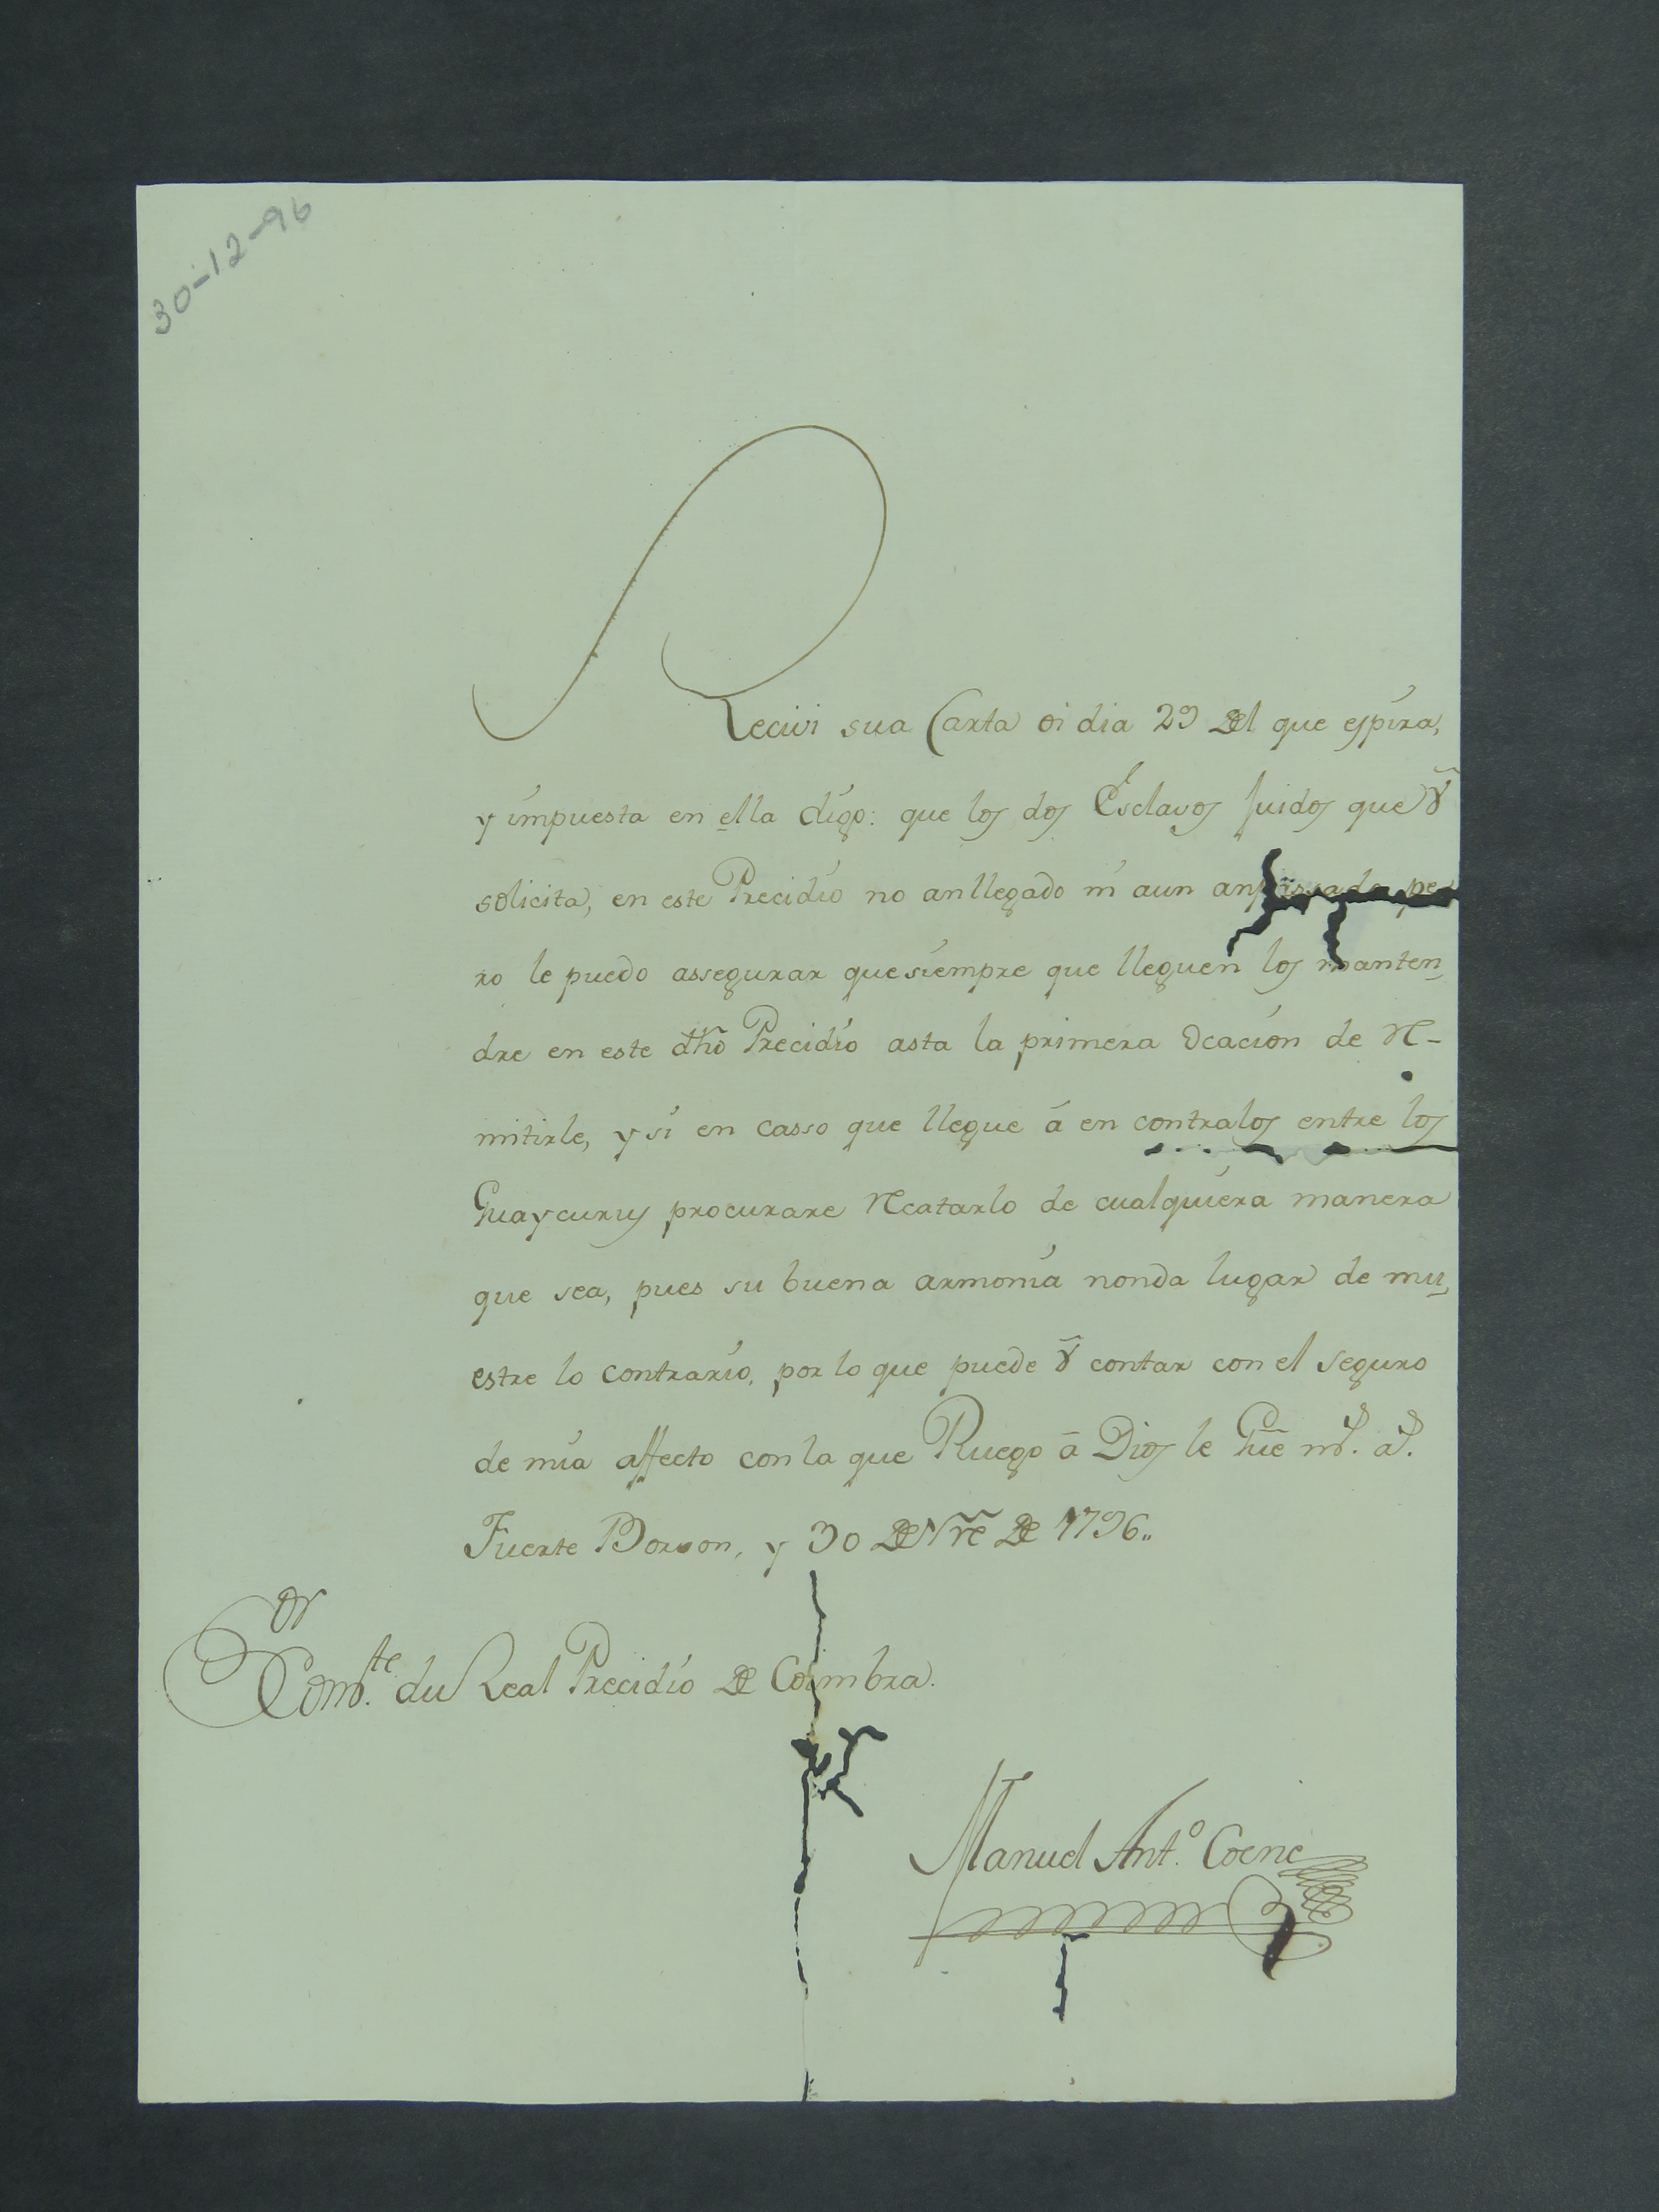 30-12-96
Recivi sua Carta oi dia 29 del que espira,
y impuesta en ella digo: que los dos Esclavos fuidos que V̄
solicita, en este Precidio no anllegado ni aun an pe
ro le puedo assegurar que siempre que lleguen los manten
dre en este dhõ Precidio asta la primera Ocacion de Re-
mitirle, y si en casso que llegue á en contralos entre los
Guaycurus procurare Recatarlo de cualquiera manera
que sea, pues su buena armonia nonda lugar de mu
estre lo contrario, por lo que puede V̄ contar con el seguro
de mia affecto con la que Ruego ā Dios le Gūe ms. as.
Fuerte Borvon, y 30 de Nre de 1796..
Sor
Comte. du Real Precidio de Coimbra.
Manuel Anto. Coene